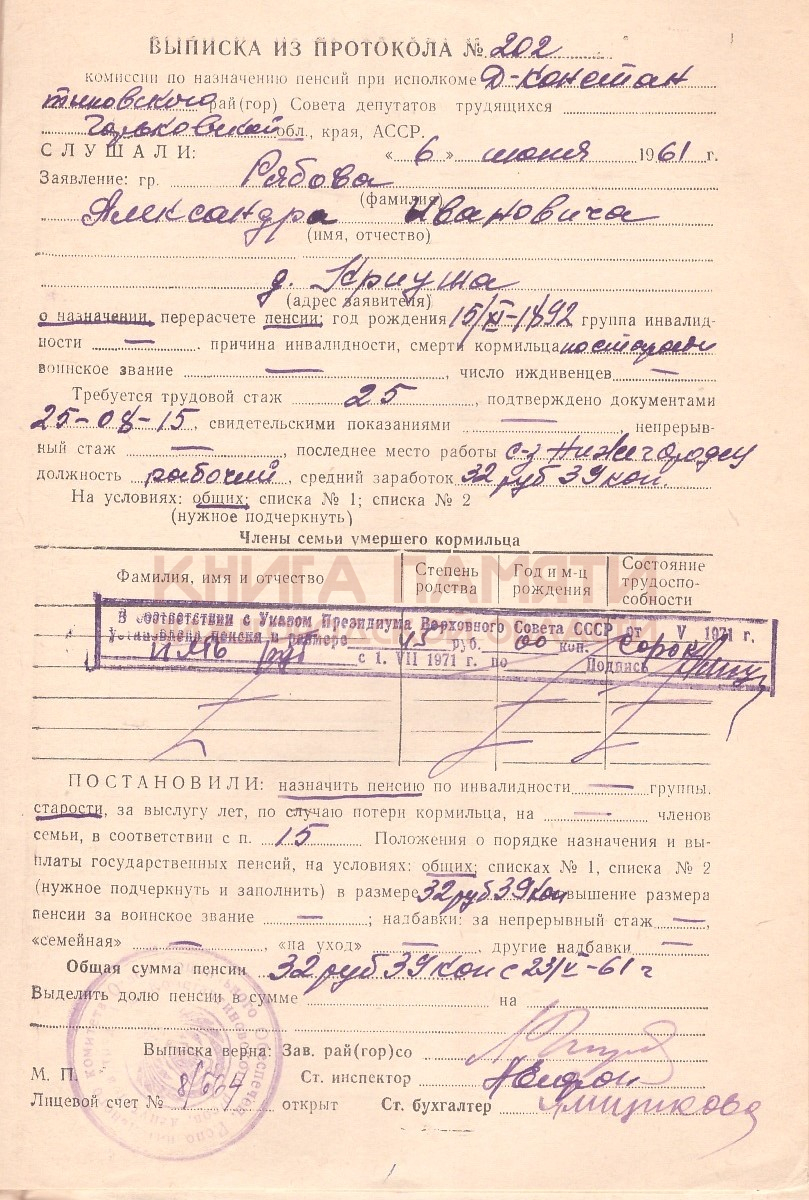 ВЫПИСКА ИЗ ПРОТОКОЛА № 202
комиссии по назначению пенсий при исполкоме Д-Констан
тиновского рай(гор) Совета депутатов трудящихся
Горьковской обл., края, АССР.
СЛУШАЛИ: « 6 » июня 1961 г.
Заявление: гр. Рябова
(фамилия)
Александра Ивановича
(имя, отчество)
д. Криуша
(адрес заявителя)
о назначении, перерасчете пенсии; год рождения 15/XI-1892 группа инвалид-
ности — . причина инвалидности, смерти кормильца по старости
воинское звание —, число иждивенцев —
Требуется трудовой стаж 25, подтверждено документами
25-08-15, свидетельскими показаниями —, непрерыв-
ный стаж —, последнее место работы с-з Нижегородец
должность рабочий, средний заработок 32 руб 39 коп.
На условиях: общих; списка № 1; списка № 2
(нужное подчеркнуть)
Члены семьи умершего кормильца
Фамилия, имя и отчество
Степень родства
Год и м-ц рождения
Состояние трудоспо-собности
КНИГА ПАМЯТИ
В соответствии с Указом Президиума Верховного Совета СССР от V 1971 г.
установлена пенсия в размере 45 руб. 00 коп. Сорок
пять руб с 1. VII 1971 г. по Подпись
ПОСТАНОВИЛИ: назначить пенсию по инвалидности — группы,
старости, за выслугу лет, по случаю потери кормильца, на — членов
семьи, в соответствии с п. 15 Положения о порядке назначения и вы-
платы государственных пенсий, на условиях: общих; списках № 1, списка № 2
(нужное подчеркнуть и заполнить) в размере 32 руб 39 коп повышение размера
пенсии за воинское звание —; надбавки: за непрерывный стаж —,
«семейная» —, «на уход» —, другие надбавки —
Общая сумма пенсии 32 руб 39 коп с 23/V-61 г
Выделить долю пенсии в сумме на
Выписка верна: Зав. рай(гор)со
М. П. Ст. инспектор
Лицевой счет № открыт Ст. бухгалтер Ямщикова